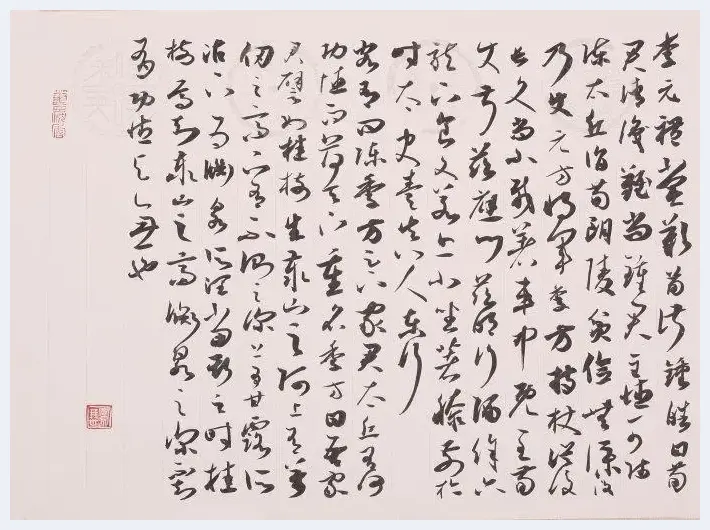 李元禮嘗歎荀淑鍾皓曰荀
君清識難尚鍾君至德可師
陳太丘詣荀朗陵貧儉無僕役
乃使元方將車季方持杖從後
長文尚小載著車中既至荀
使叔慈應門慈明行酒餘六
龍下食文若亦小坐著膝前於
時太史奏真人東行
客有問陳季方足下家君太丘有何
功德而荷天下重名季方曰吾家
君譬如桂樹生泰山之阿上有萬
仞之高下有不測之深上爲甘露所
沾下爲淵泉所潤當斯之時桂
樹焉知泰山之高淵泉之深不知
有功德與無也